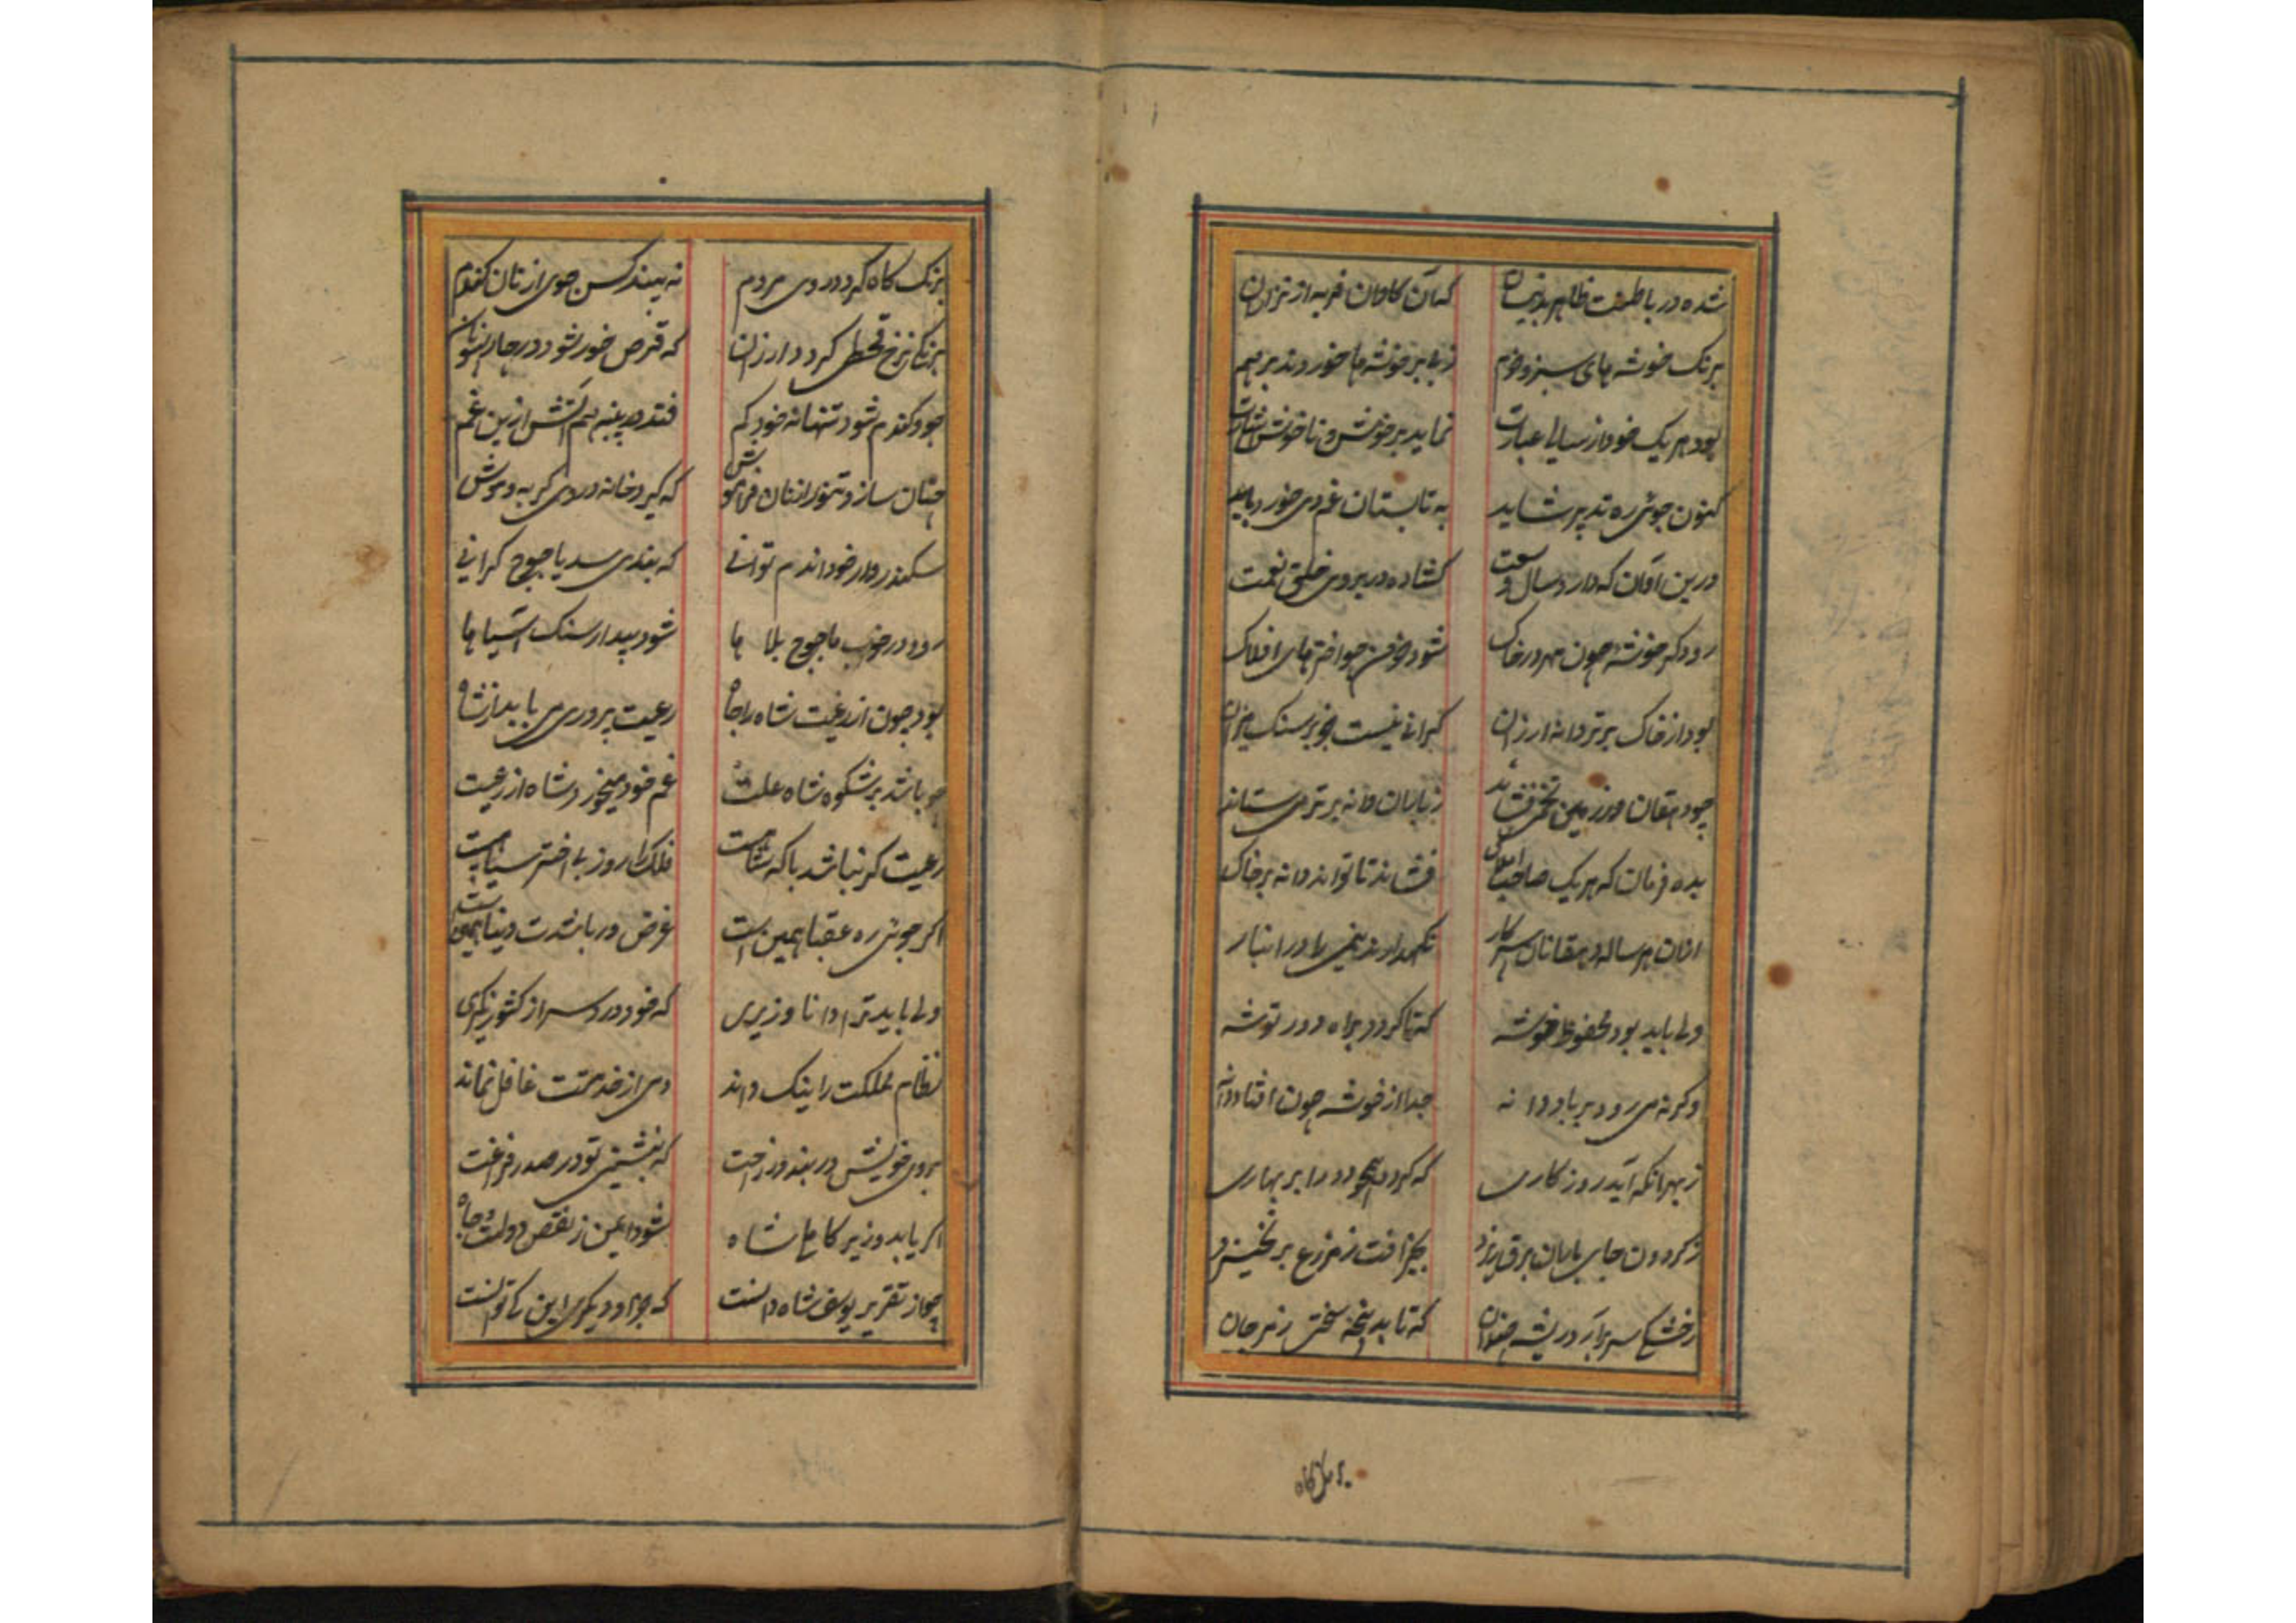 شده در باطنت ظاهر بدینسان که آن کاوان فربه از نزاران
برنک خوشه های سبز و خرم ز بی بر خوشه ها خوردند بر هم
بود هر یک خود از سالی عبارت نماید بر خوش و ناخوش اشارت
کنون جوئی ره تدبیر شاید به تابستان غم دی خورد باید
درین آوان که دارد سال وسعت کشاده در بروی خلق نعمت
رود کر خوشه چون مهر در خاک شود خرمن چو اختر های افلاک
بود از خاک برتر دانه ارزان کرانی نیست جز بر سنک میزان
چو دهقان در زمین تخمی فشاند ز باران دانه برتر می ستاند
بده فرمان که هر یک صاحب املاک فشاند تا تواند دانه بر خاک
ازان هر ساله دهقانان سرکار نکهدارند نیمی را در انبار
ولی باید بود محفوظ خوشه که تا کردد براه دور توشه
وکرنه می رود بر باد دانه جدا از خوشه چون افتاد دانه
ز بهر آنکه آید روزکاری که کردد همچو دود ابر بهاری
ز کردون جای باران برق ریزد بجز آفت ز مزرع بر نخیزد
ز خشکی سر برآرد ریشه چندان که تابد پنجه سختی ز مرجان
برنک کاه
برنک کاه کردد روی مردم نه بیند کس جوی از نان کندم
برنکی نرخ قحطی کردد ارزان که قرص خور شود در چار سو نان
جو و کندم شود تنها نه خود کم فتد در پنبه هم آتش ازین غم
چنان سازد تنور از نان فراموش که کیرد خانه در وی کربه و موش
سکندروار خود آندم توانی که بندی سد یاجوج کرانی
رود در خواب یاجوج بلا ها شود بیدار سنک آسیا ها
بود چون از رعیت شاه را جاه رعیت پروری می باید از شاه
چو باشد بر شکوه شاه علت غم خود میخورد شاه از رعیت
رعیت کر نباشد با که شاهیست فلک را روز بی اختر سیاهیست
اکر جوئی ره عقبا همین است غرض ور باشدت دنیا همین است
ولی باید ترا دانا وزیری که خود در سر از کشور نکیری
نظام مملکت را نیک داند دمی از خدمتت غافل نماند
بروی خویش در بندد ز راحت که بنشینی تو در صدر فراغت
اکر یابد وزیر کاملی شاه شود ایمن ز نقص دولت و جاه
چو از تقریر یوسف شاه دانست که جز او دیکری این کی توانست